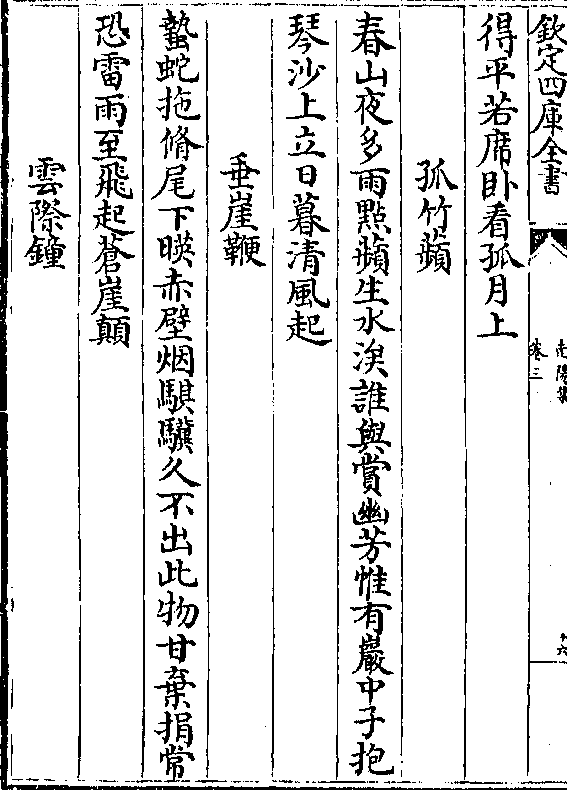 欽定四庫全書
南陽集
卷三
十六
得平若席卧看孤月上
孤竹蘋
春山夜多雨點蘋生水涘誰與賞幽芳惟有巖中子抱
琴沙上立日暮清風起
垂崖鞭
蟄蛇拖脩尾下暎赤壁烟騏驥久不出此物甘棄捐常
恐雷雨至飛起蒼崖顛
雲際鐘